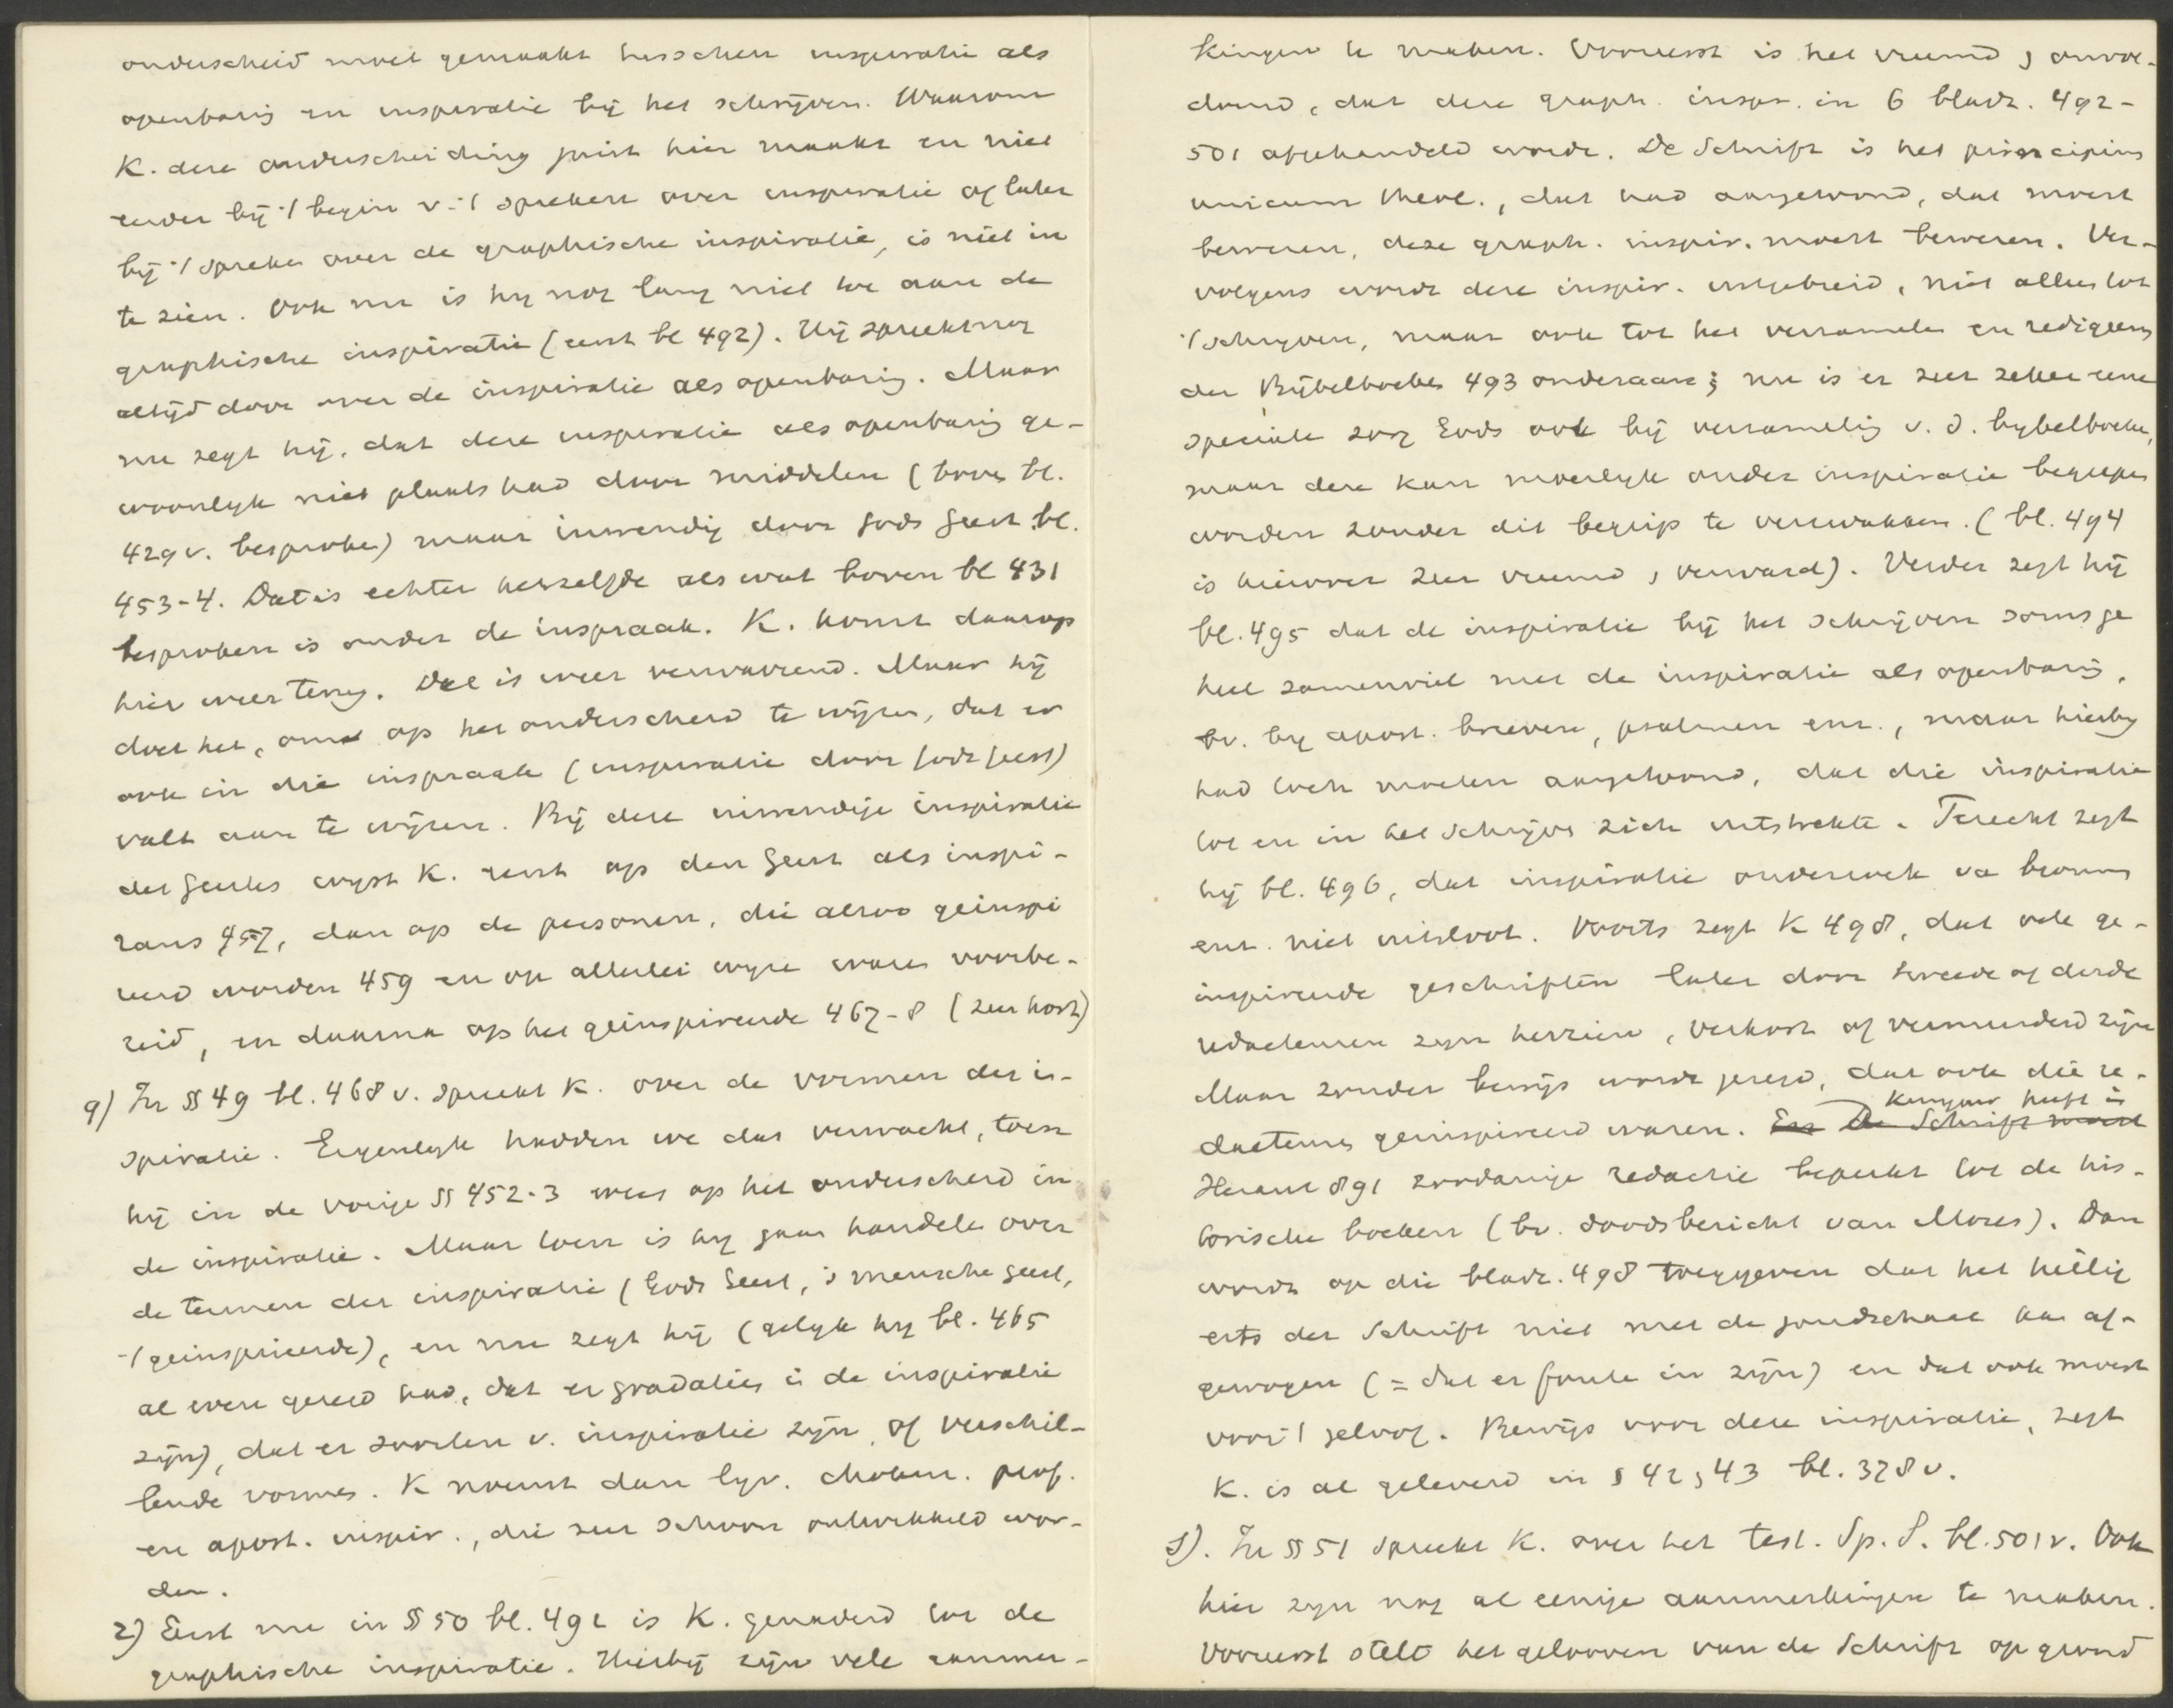 onderscheid moet gemaakt tusschen inspiratie als
openbaring en inspiratie bij het schrijven. Waarom
K. deze onderscheiding juist hier maakt en niet
eerder bij 't begin v. 't spreken over inspiratie of later
bij 't spreken over de graphische inspiratie, is niet in
te zien. Ook nu is hij nog lang niet toe aan de
graphische inspiratie (eerst bl 492). Hij spreekt nog
altijd door over de inspiratie als openbaring. Maar
nu zegt hij, dat deze inspiratie als openbaring ge-
woonlijk niet plaats had door middelen (boven bl.
429 v. besproken) maar inwendig door Gods Geest bl.
453-4. Dat is echter hetzelfde als wat boven bl 431
besproken is onder de inspraak. K. komt daarop
hier weer terug. Dat is weer verwarrend. Maar hij
doet het, om op het onderscheid te wijzen, dat er
ook in die inspraak (inspiratie door Gods Geest)
valt aan te wijzen. Bij deze inwendige inspiratie
des Geestes wijst K. eerst op den Geest als inspi-
rans 457, dan op de personen, die alzoo geinspi
reerd worden 459 en op allerlei wijze waren voorbe-
reid, en daarna op het geinspireerde 467-8 (zeer kort)
9) In §§ 49 bl. 468 v. spreekt K. over de vormen der in-
spiratie. Eigenlijk hadden we dat verwacht, toen
hij in de vorige §§ 452-3 wees op het onderscheid in
de inspiratie. Maar toen is hij gaan handelen over
de termen der inspiratie (Gods Geest, 's menschen geest,
't geinspireerde), en nu zegt hij (gelijk hij bl. 465
al even gezegd had, dat er gradaties in de inspiratie
zijn), dat er soorten v. inspiratie zijn, of verschil-
lende vormen. K noemt dan lyr. chokm. prof.
en apost. inspir., die zeer schoon ontwikkeld wor-
den.
2) Eerst nu in §§ 50 bl. 492 is K. genaderd tot de
graphische inspiratie. Hierbij zijn vele aanmer-
kingen te maken. Vooreerst is het vreemd, onvol-
doend, dat deze graph. inspir. in 6 bladz. 492-
501 afgehandeld wordt. De Schrift is het principium
unicum theol., dat had aangetoond, dat moest
bewezen, deze graph. inspir. moest bewezen. Ver-
volgens wordt deze inspir. uitgebreid, niet alleen tot
't schrijven, maar ook tot het verzamelen en redigeeren
der Bijbelboeken 493 onderaan; nu is er zeer zeker eene
speciale zorg Gods ook bij verzameling v. d. bijbelboeken,
maar deze kan moeilijk onder inspiratie begrepen
worden zonder dit begrip te verzwakken. (bl. 494
is hierover zeer vreemd, verward). Verder zegt hij
bl. 495 dat de inspiratie bij het schrijven soms ge
heel samenviel met de inspiratie als openbaring,
bv. bij apost. brieven, psalmen enz., maar hierbij
had toch moeten aangetoond, dat die inspiratie
tot en in het schrijven zich uitstrekte. Terecht zegt
hij bl. 496, dat inspiratie onderzoek van bronnen
enz. niet uitsloot. Voorts zegt K 498, dat vele ge-
inspireerde geschriften later door tweede of derde
redacteuren zijn herzien, verkort of vermeerderd zijn
Maar zonder bewijs wordt gezegd, dat ook die re-
dacteuren geinspireerd waren. En De Schrift moest Kuyper heeft in
Heraut 891 zoodanige redactie beperkt tot de his-
torische boeken (bv. doodsbericht van Mozes). Dan
wordt op die bladz. 498 toegegeven dat het heilig
erts der Schrift niet met de goudschaal kan af-
gewogen (= dat er fouten in zijn) en dat ook moest
voor 't geloof. Bewijs voor deze inspiratie, zegt
K. is al geleverd in § 42, 43 bl. 378 v.
3). In §§ 51 spreekt K. over het test. Sp. S. bl. 501 v. Ook
hier zijn nog al eenige aanmerkingen te maken.
Vooreerst stelt het gelooven van de Schrift op grond